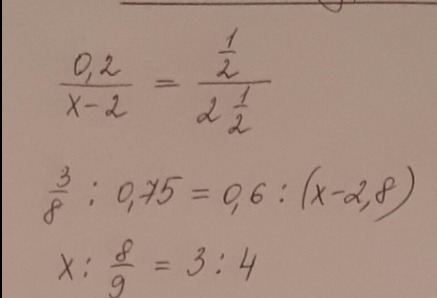 0,2/(x-2) = (1/2)/(2 1/2)
3/8 : 0,75 = 0,6 : (x-2,8)
x : 8/9 = 3 : 4